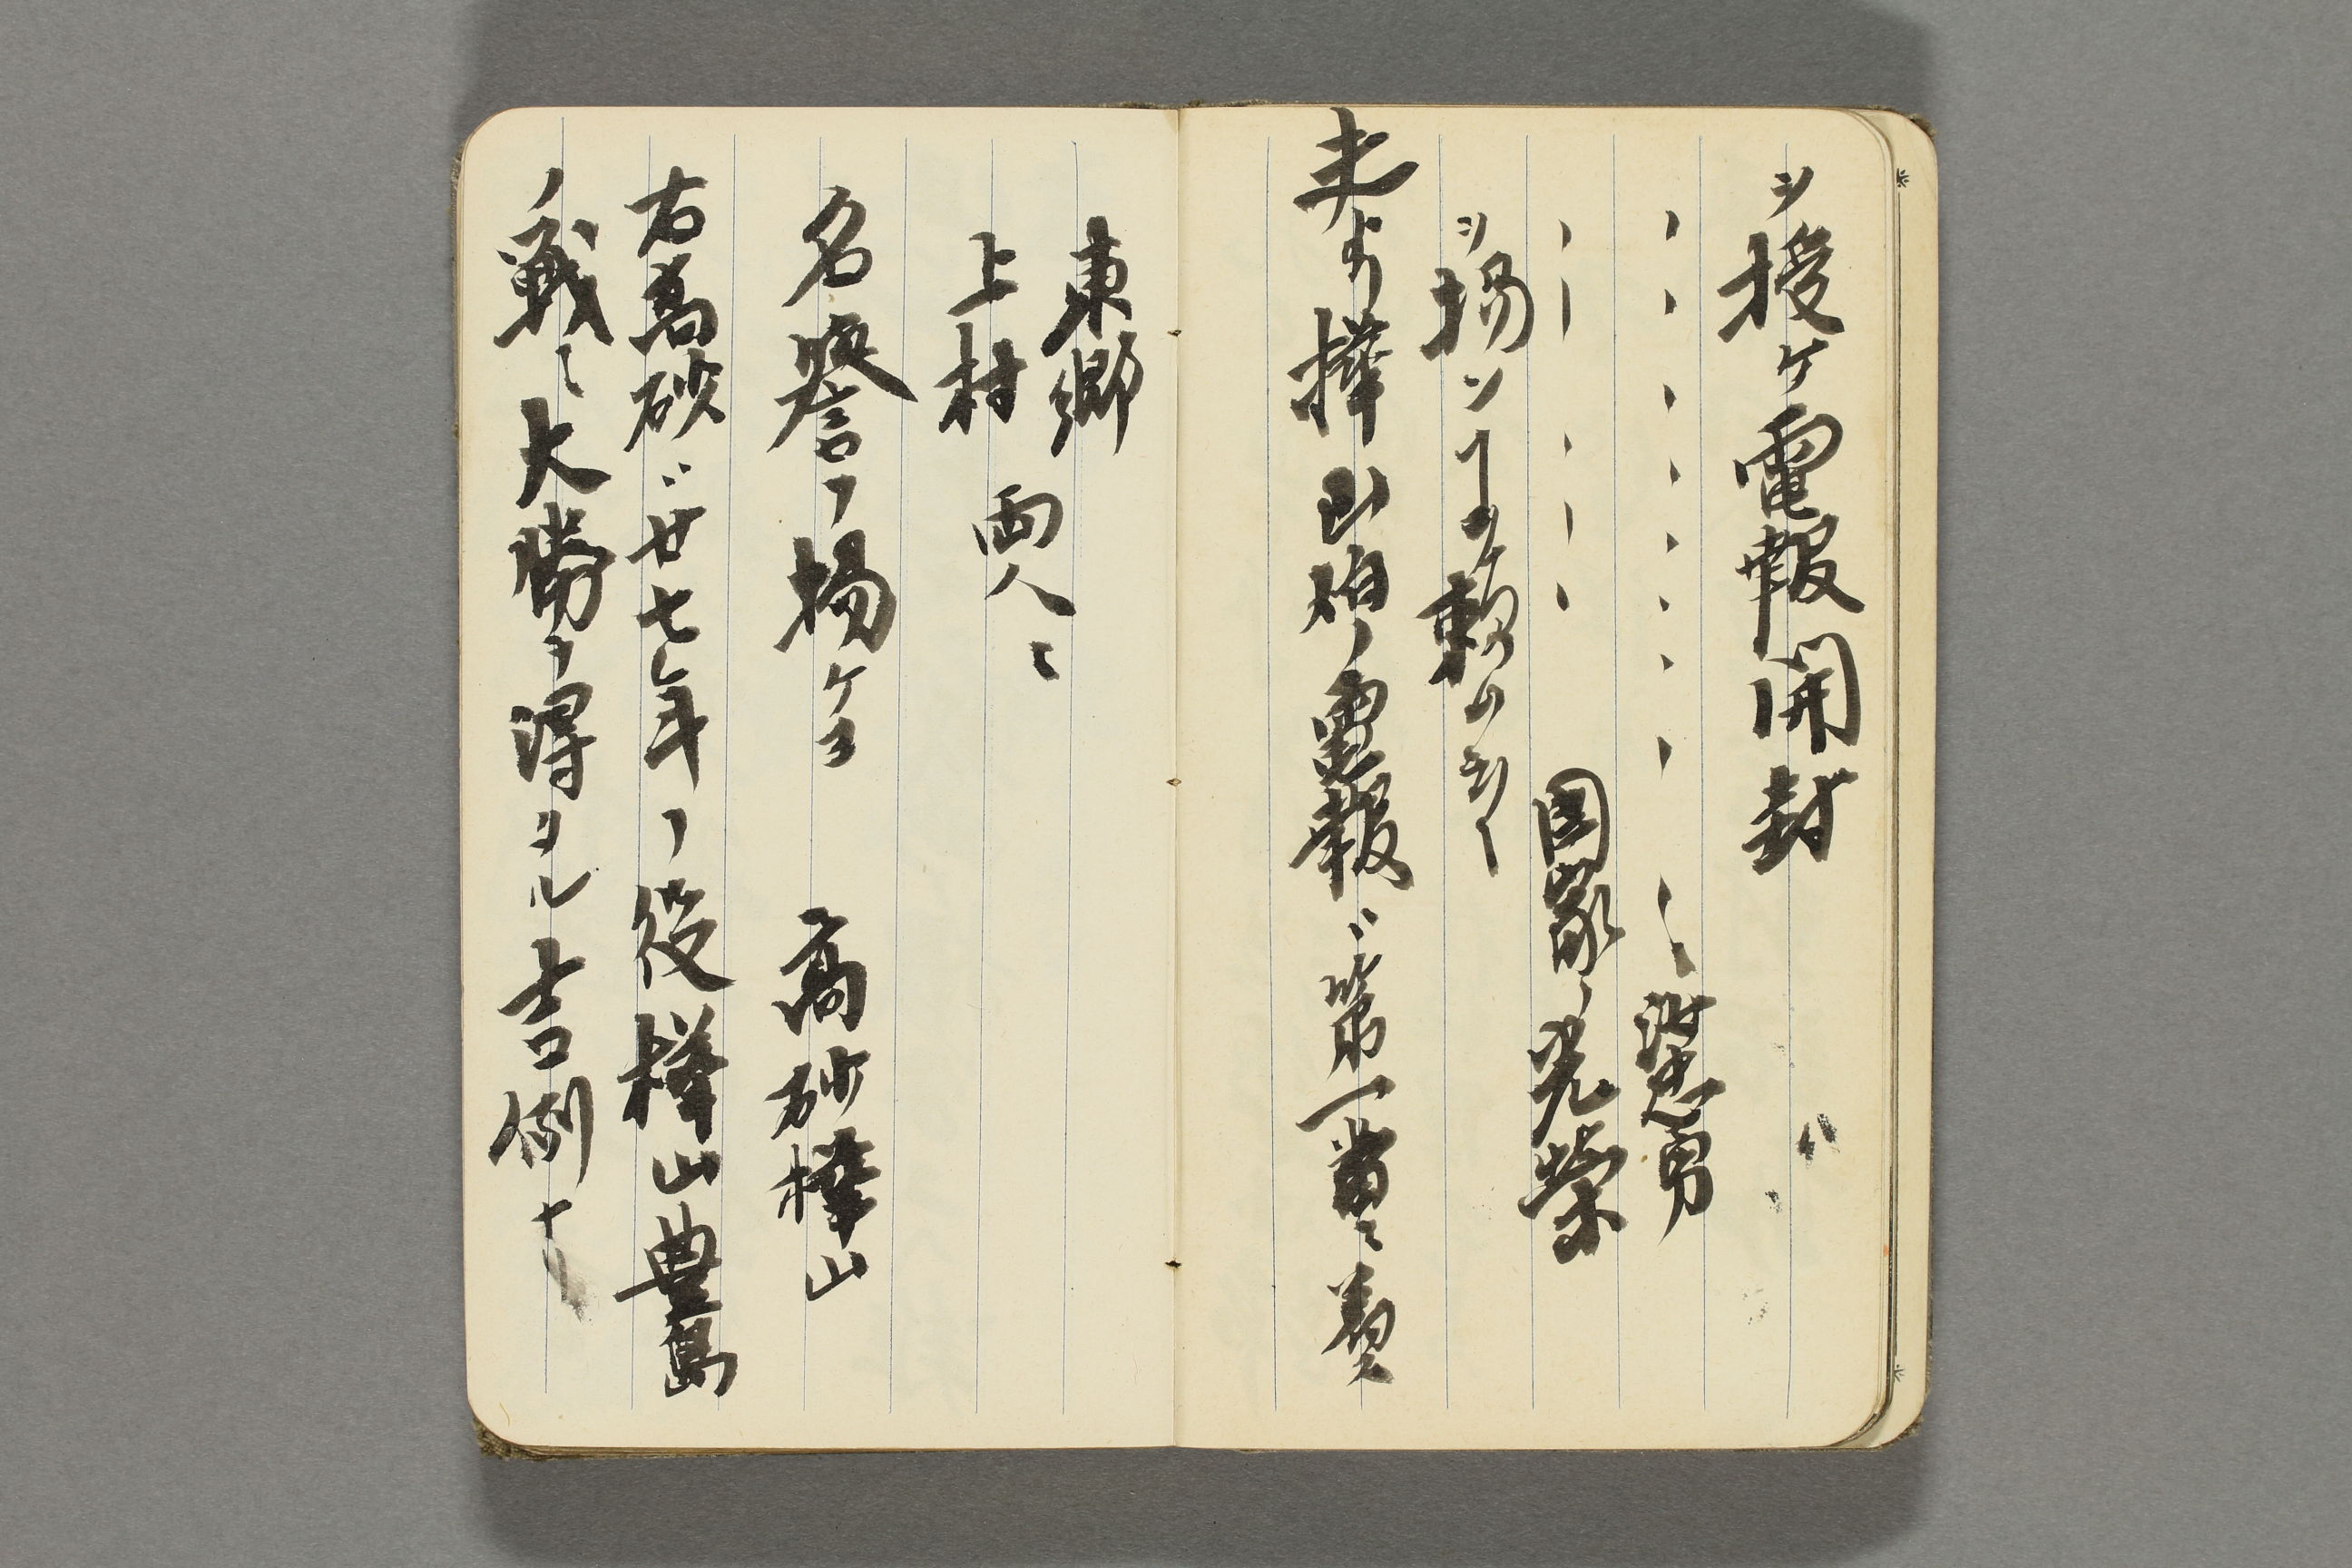 シ授ケ電報開封
、、、、、、、、、忠勇
、、、、、国家ノ光栄
ヲ揚ン
夫より樺山伯ノ電報ハ第一着ニ
東郷
上村 両人ニ
名誉ヲ揚ケヨ 高砂樺山
右高砂ハ廿七年ノ役樺山豊島
ノ戦ニ大勝ヲ得タル吉例ナリ